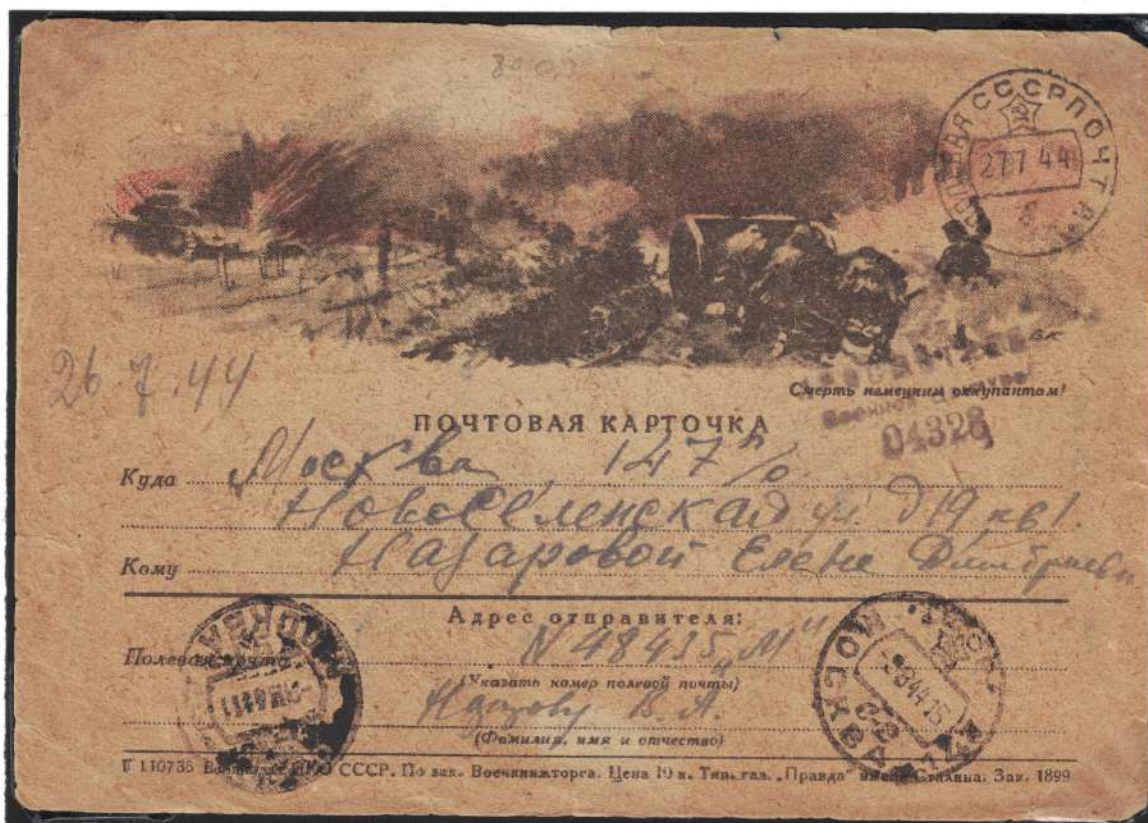 СССР ПОЧТА
27 7 44
26 7.44
Смерть немецким оккупантам!
ПОЧТОВАЯ КАРТОЧКА
04328
Куда Москва, 147 п/о
Новоселенская ул. д 19 кв 1.
Кому Назаровой Елене Дмитриевне
Адрес отправителя:
Полевая почта N 48435 „М"
(Указать номер полевой почты)
В. А.
(Фамилия, имя и отчество)
МОСКВА
МОСКВА
Г 110735 Воениздат НКО СССР. По зак. Военкнижторга. Цена 10 к. Тип. газ. „Правда" имени Сталина. Зак. 1899